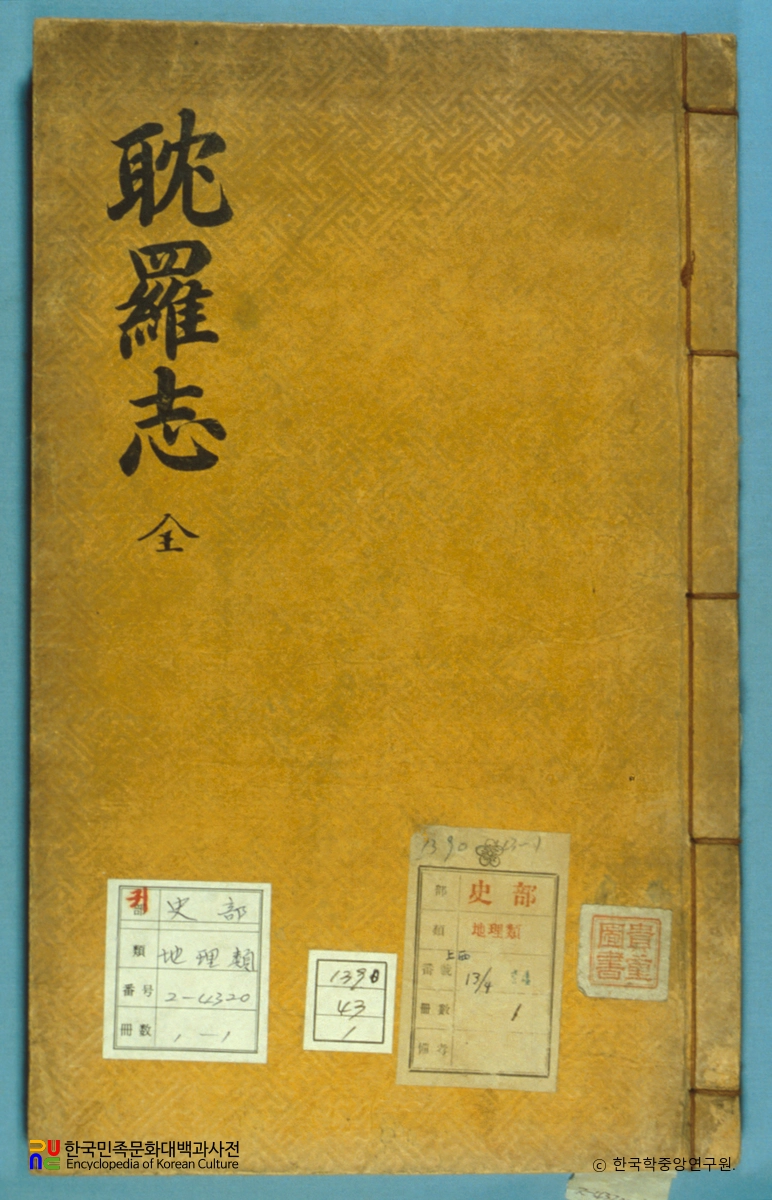 耽羅志
全
귀
部 史部
類 地理類
番号 2-4320
冊数 1-1
1390
43
1
1390 43-1
部 史部
類 地理類
番號 13/4
冊數 1
備考
貴重
圖書
한국민족문화대백과사전
Encyclopedia of Korean Culture
© 한국학중앙연구원.